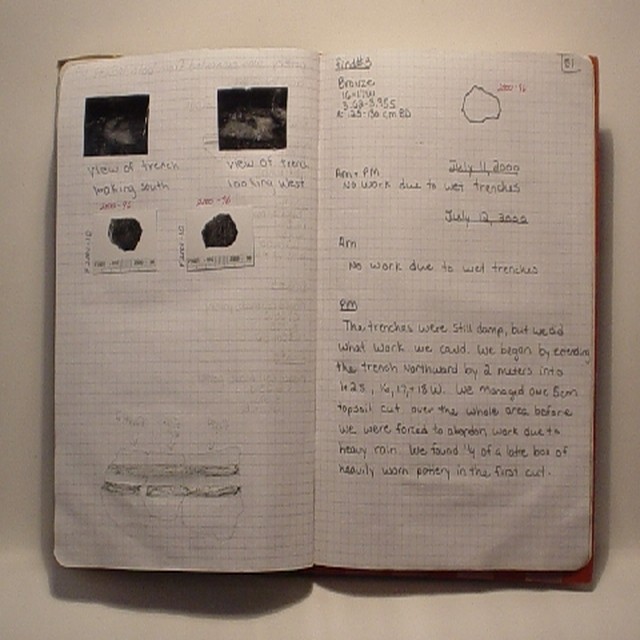 view of trench
looking south
view of trench
looking west
2000-96
2000-96
find#3
81
Bronze
2000-96
July 11, 2000
Am + PM
No work due to wet trenches
July 12, 2000
Am
No work due to wet trenches
PM
The trenches were still damp, but we did
what work we could. We began by extending
the trench Northward by 2 meters into
16, 17, + 18 W. We managed one 5cm
topsoil cut over the whole area before
we were forced to abandon work due to
heavy rain. We found 1/4 of a latte box of
heavily worn pottery in the first cut.